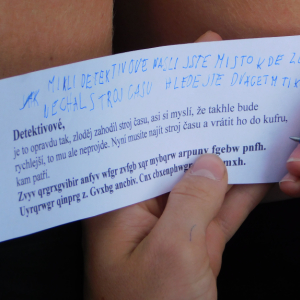 JAK MILI DETEKTIVOVE NAŠLI JSTE MISTO KDE
NECHAL STROJ ČASU HLEDEJTE DVACET
Detektivové,
je to opravdu tak, zloděj zahodil stroj času, asi si myslí, že takhle bude
rychlejší, to mu ale neprojde. Nyní musíte najít stroj času a vrátit ho do kufru,
kam patří.
Zvyv qrgrxgvibir anfyv wfgr zvfgb xqr mybqrw arpunv fgebw pnfh.
Uyrqrwgr qinprg z. Gvxbg ancbiv. Cnx cbxenphwgr